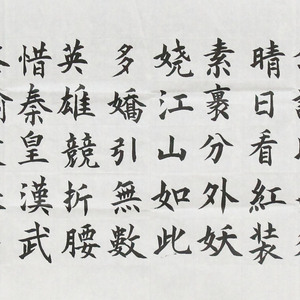 晴日看紅装
素裹分外妖
娆江山如此
多嬌引無數
英雄競折腰
惜秦皇漢武